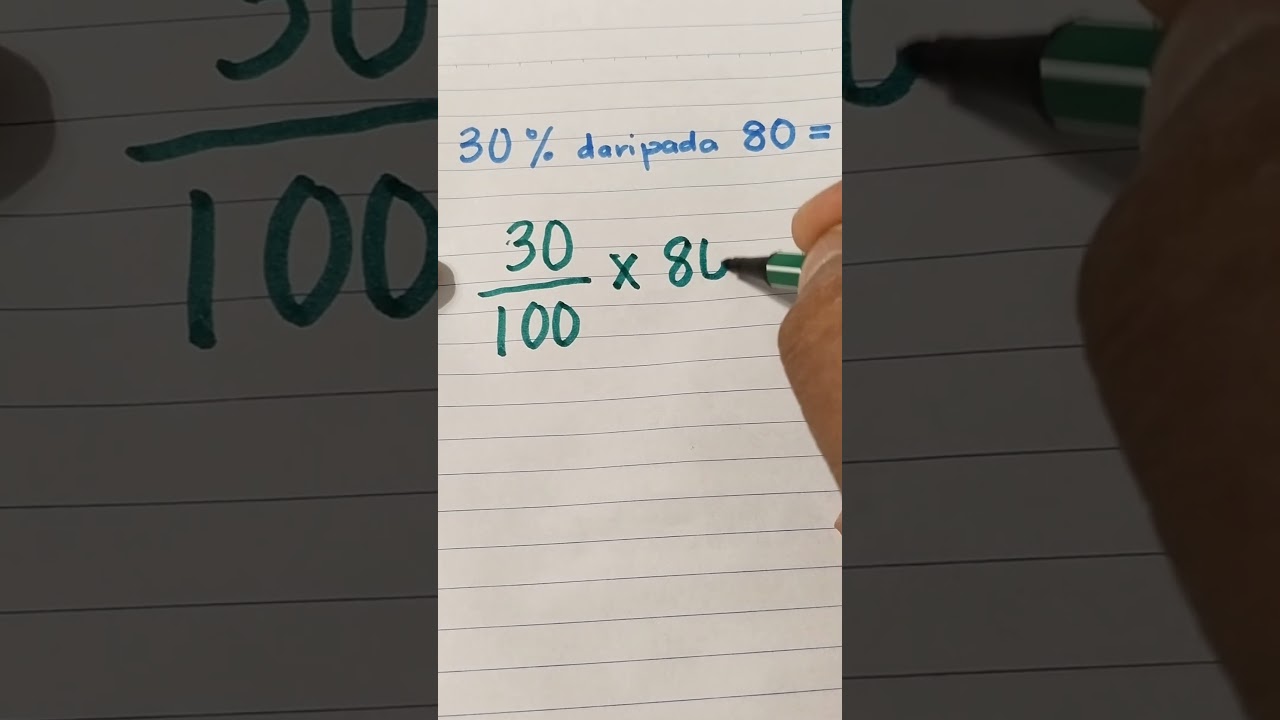 30% daripada 80 =
30
100
x 8